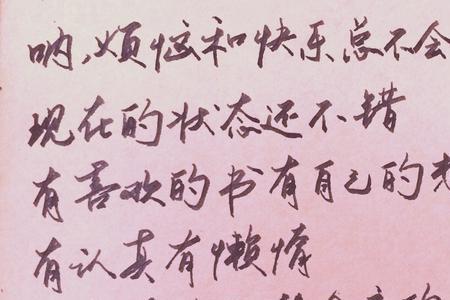 呐,烦恼和快乐总不会
现在的状态还不错
有喜欢的书有自己的
有认真有懒惰